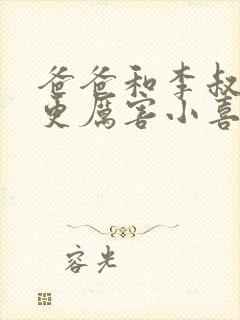 爸爸和李叔
更厉害小喜
容光